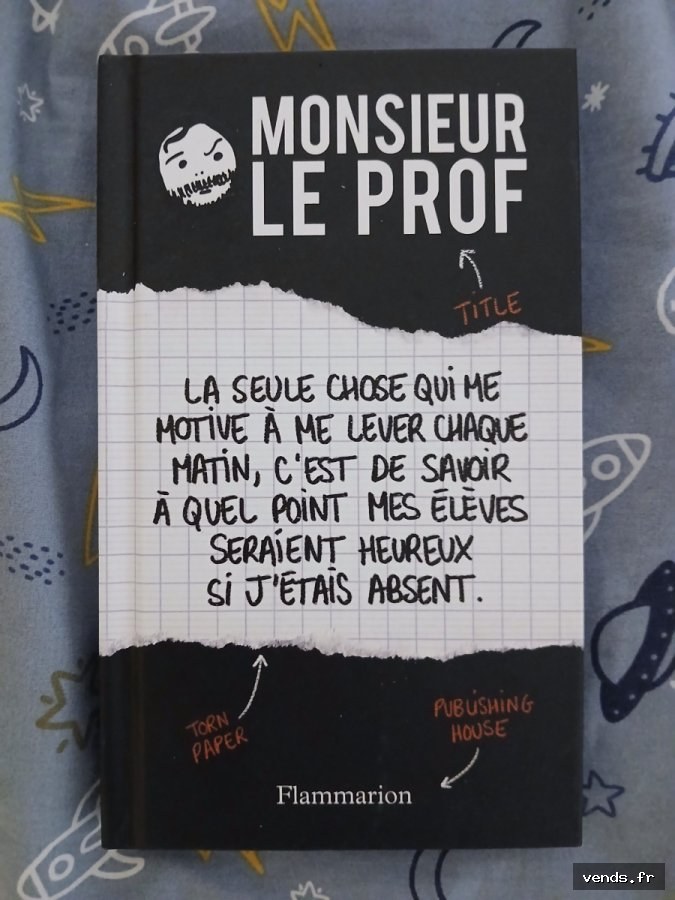 MONSIEUR
LE PROF
TITLE
LA SEULE CHOSE QUI ME
MOTIVE À ME LEVER CHAQUE
MATIN, C'EST DE SAVOIR
À QUEL POINT MES ÉLÈVES
SERAIENT HEUREUX
SI J'ÉTAIS ABSENT.
TORN
PAPER
PUBLISHING
HOUSE
Flammarion
vends.fr